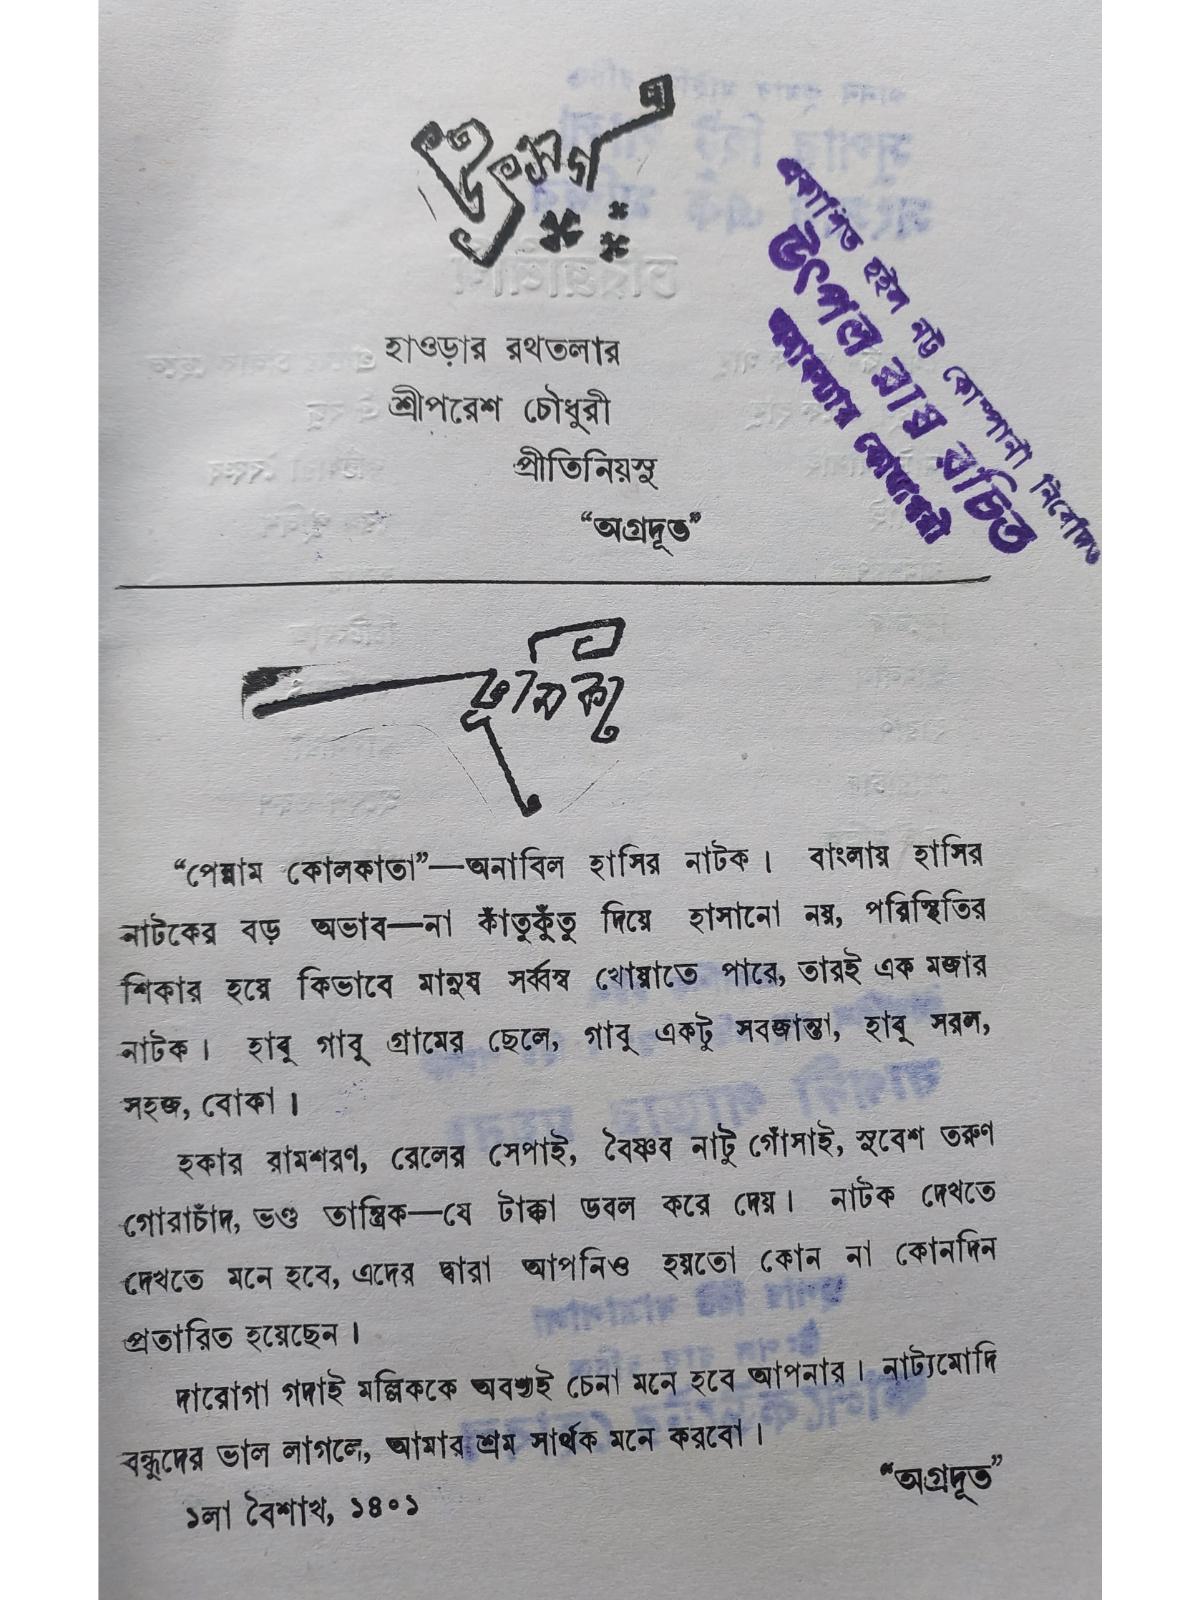 উৎসর্গ
হাওড়ার রথতলার
শ্রীপরেশ চৌধুরী
প্রীতিনিয়সু
“অগ্রদূত”
প্রকাশিত হইল নট্ট কোম্পানী নিবেদিত
উৎপল রায় রচিত
ভূমিকা
“পেন্নাম কোলকাতা”—অনাবিল হাসির নাটক। বাংলায় হাসির
নাটকের বড় অভাব—না কাঁতুকুঁতু দিয়ে হাসানো নয়, পরিস্থিতির
শিকার হয়ে কিভাবে মানুষ সর্ব্বস্ব খোয়াতে পারে, তারই এক মজার
নাটক। হাবু গাবু গ্রামের ছেলে, গাবু একটু সবজান্তা, হাবু সরল,
সহজ, বোকা।
হকার রামশরণ, রেলের সেপাই, বৈষ্ণব নাটু গোঁসাই, সুবেশ তরুণ
গোরাচাঁদ, ভণ্ড তান্ত্রিক—যে টাক্কা ডবল করে দেয়। নাটক দেখতে
দেখতে মনে হবে, এদের দ্বারা আপনিও হয়তো কোন না কোনদিন
প্রতারিত হয়েছেন।
দারোগা গদাই মল্লিককে অবশ্যই চেনা মনে হবে আপনার। নাট্যমোদি
বন্ধুদের ভাল লাগলে, আমার শ্রম সার্থক মনে করবো।
“অগ্রদূত”
১লা বৈশাখ, ১৪০১